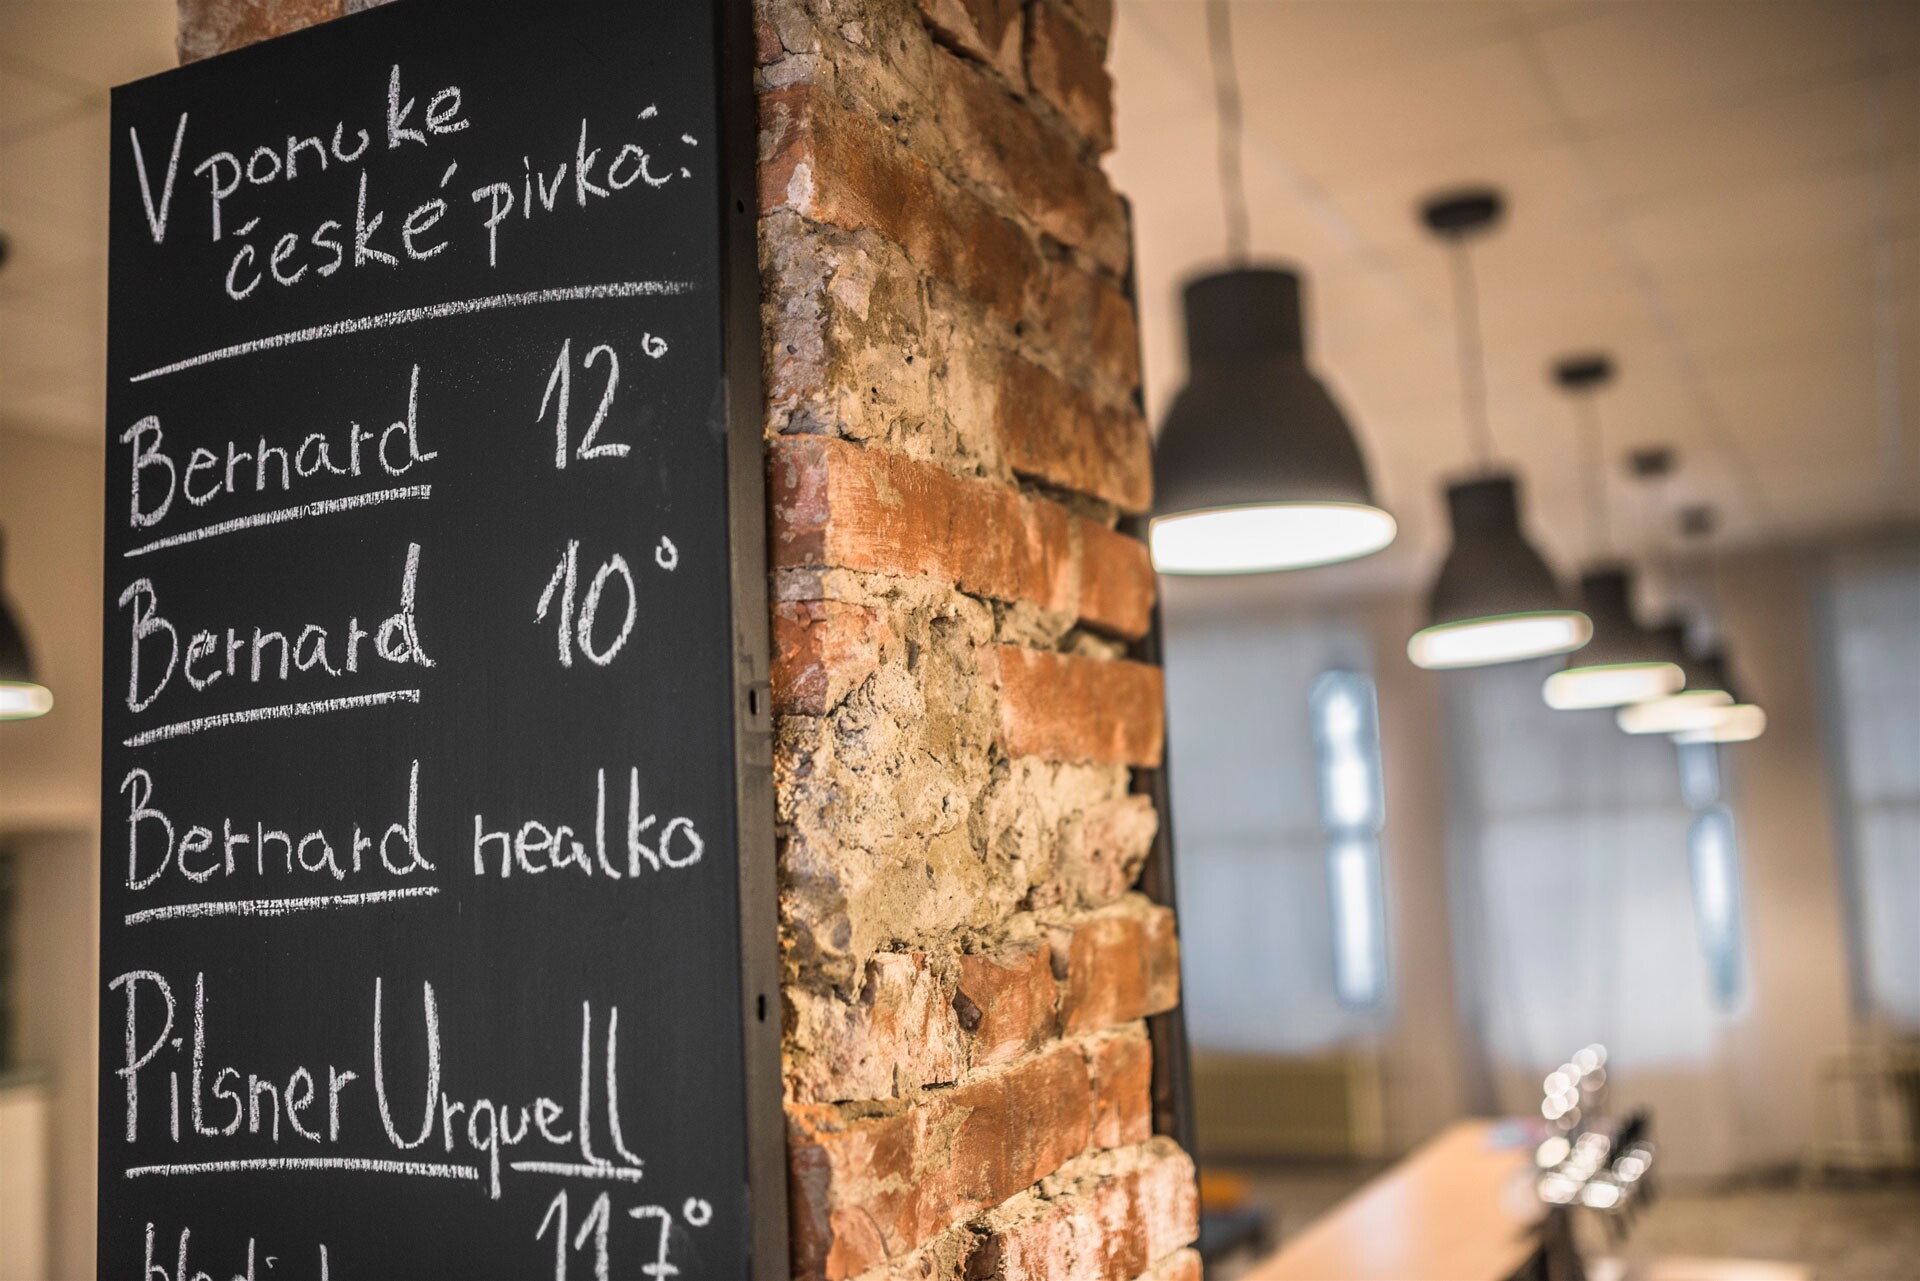 V ponuke
české pivká:
Bernard 12°
Bernard 10°
Bernard nealko
Pilsner Urquell
11,7°